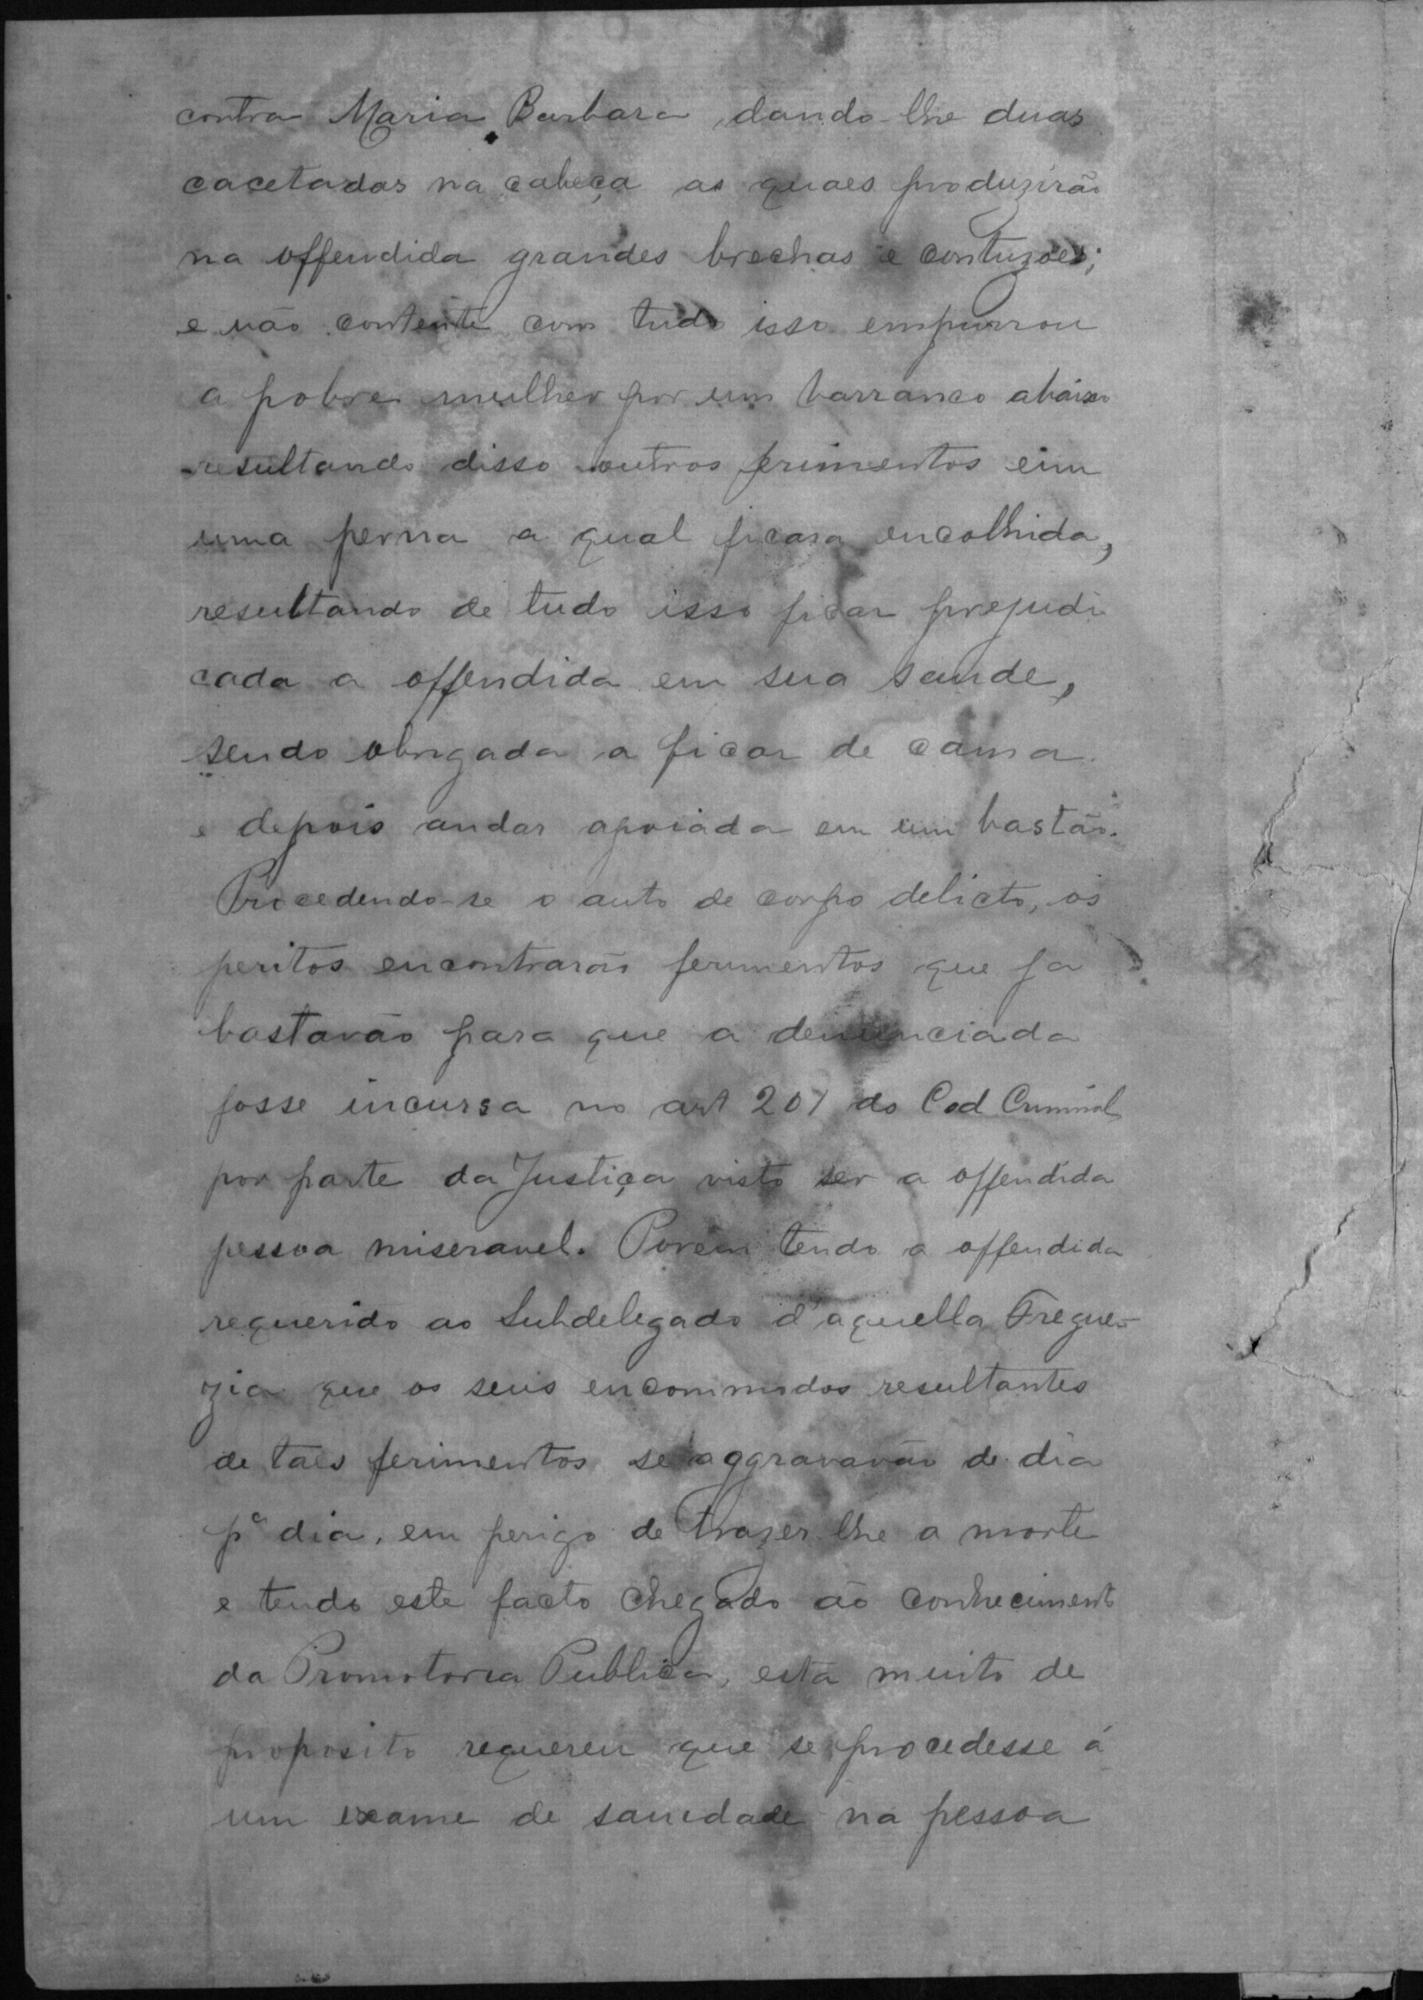 contra Maria Barbara, dando-lhe duas
cacetadas na cabeça as quaes produzirão
na offendida grandes brechas e contuzões;
e não contente com tudo isso empurrou
a pobre mulher por um barranco abaixo
resultando disso outros ferimentos em
uma perna a qual ficara encolhida,
resultando de tudo isso ficar prejudi
cada a offendida em sua saude,
sendo obrigada a ficar de cama
e depois andar apoiada em um bastão.
Procedendo-se o auto de corpo delicto, os
peritos encontrarão ferimentos que ja
bastavão para que a denunciada
fosse incursa no art 201 do Cod Criminal
por parte da Justiça visto ser a offendida
pessoa miseravel. Porem tendo a offendida
requerido ao Subdelegado d'aquella Fregue-
zia que os seus encommodos resultantes
de taes ferimentos se aggravavão de dia
pª dia, em perigo de trazer-lhe a morte
e tendo este facto chegado ao conhecimento
da Promotoria Publica, esta muito de
proposito requereu que se procedesse á
um exame de sanidade na pessoa